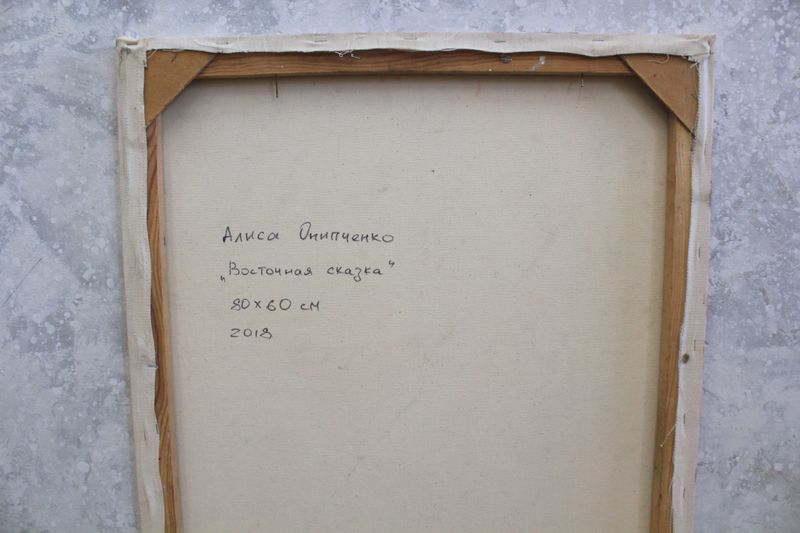 Алиса Онипченко
„Восточная сказка“
80×60 см
2018